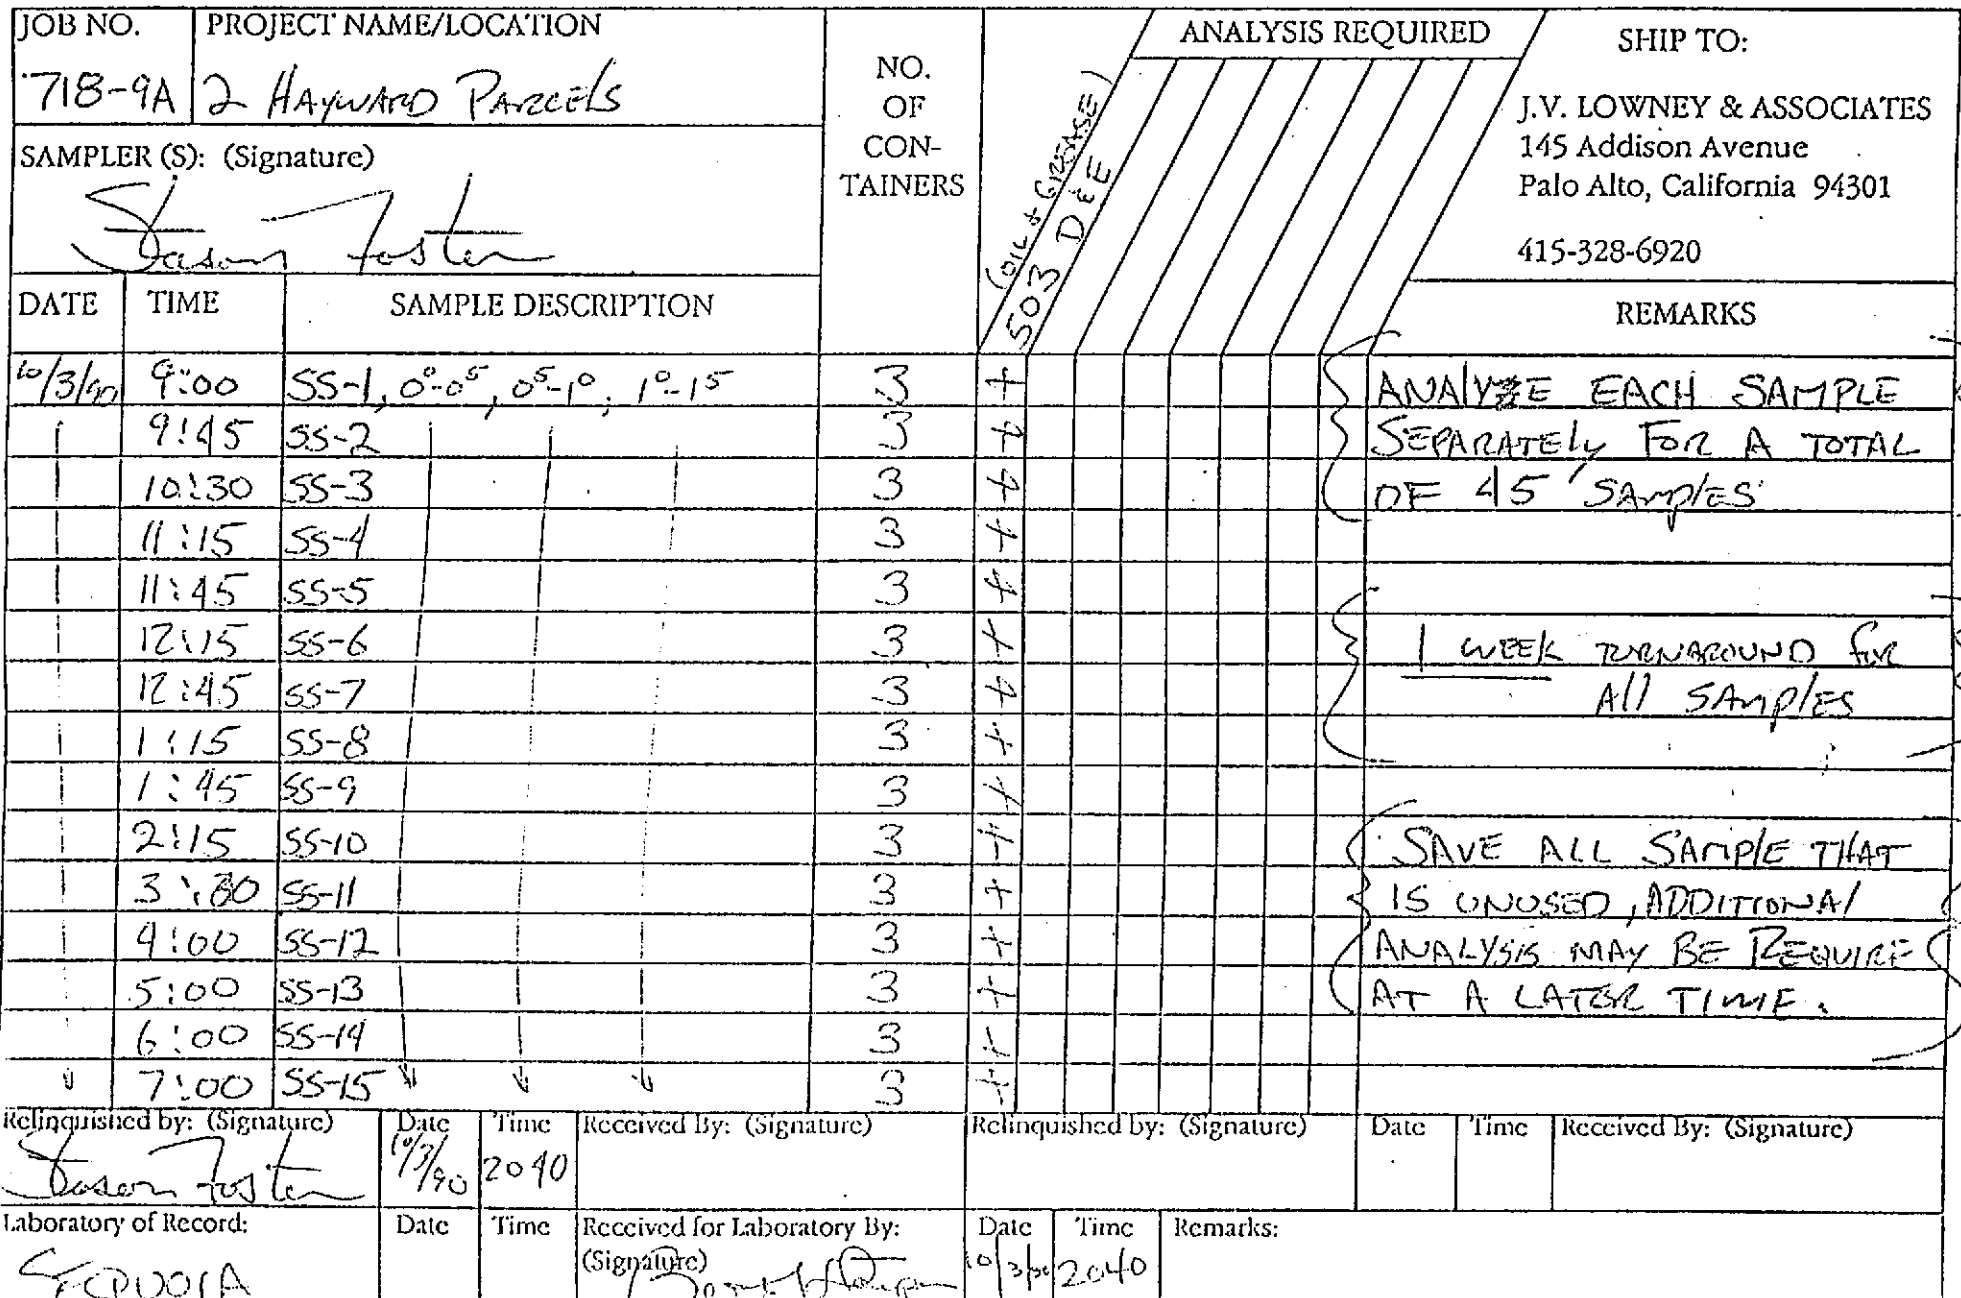 JOB NO.
PROJECT NAME/LOCATION
718-9A
2 HAYWARD PARCELS
SAMPLER (S): (Signature)
Jason Foster
NO.
OF
CON-
TAINERS
(OIL & GREASE)
503 D&E
ANALYSIS REQUIRED
SHIP TO:
J.V. LOWNEY & ASSOCIATES
145 Addison Avenue
Palo Alto, California 94301
415-328-6920
DATE TIME SAMPLE DESCRIPTION REMARKS
10/3/90 9:00 SS-1, 0⁰-0⁵, 0⁵-1⁰, 1⁰-1⁵ 3 + ANALYZE EACH SAMPLE
9:45 SS-2 3 + SEPARATELY FOR A TOTAL
10:30 SS-3 3 + OF 45 SAMPLES
11:15 SS-4 3 +
11:45 SS-5 3 +
12:15 SS-6 3 + 1 WEEK TURNAROUND for
12:45 SS-7 3 + All SAMPLES
1:15 SS-8 3 +
1:45 SS-9 3 +
2:15 SS-10 3 + SAVE ALL SAMPLE THAT
3:30 SS-11 3 + IS UNUSED, ADDITIONAL
4:00 SS-12 3 + ANALYSIS MAY BE REQUIRE
5:00 SS-13 3 + AT A LATER TIME.
6:00 SS-14 3 +
7:00 SS-15 3 +
Relinquished by: (Signature) Date Time Received By: (Signature) Relinquished by: (Signature) Date Time Received By: (Signature)
Jason Foster 10/3/90 2040
Laboratory of Record: Date Time Received for Laboratory By: Date Time Remarks:
(Signature)
SEQUOIA 10/3/90 2040